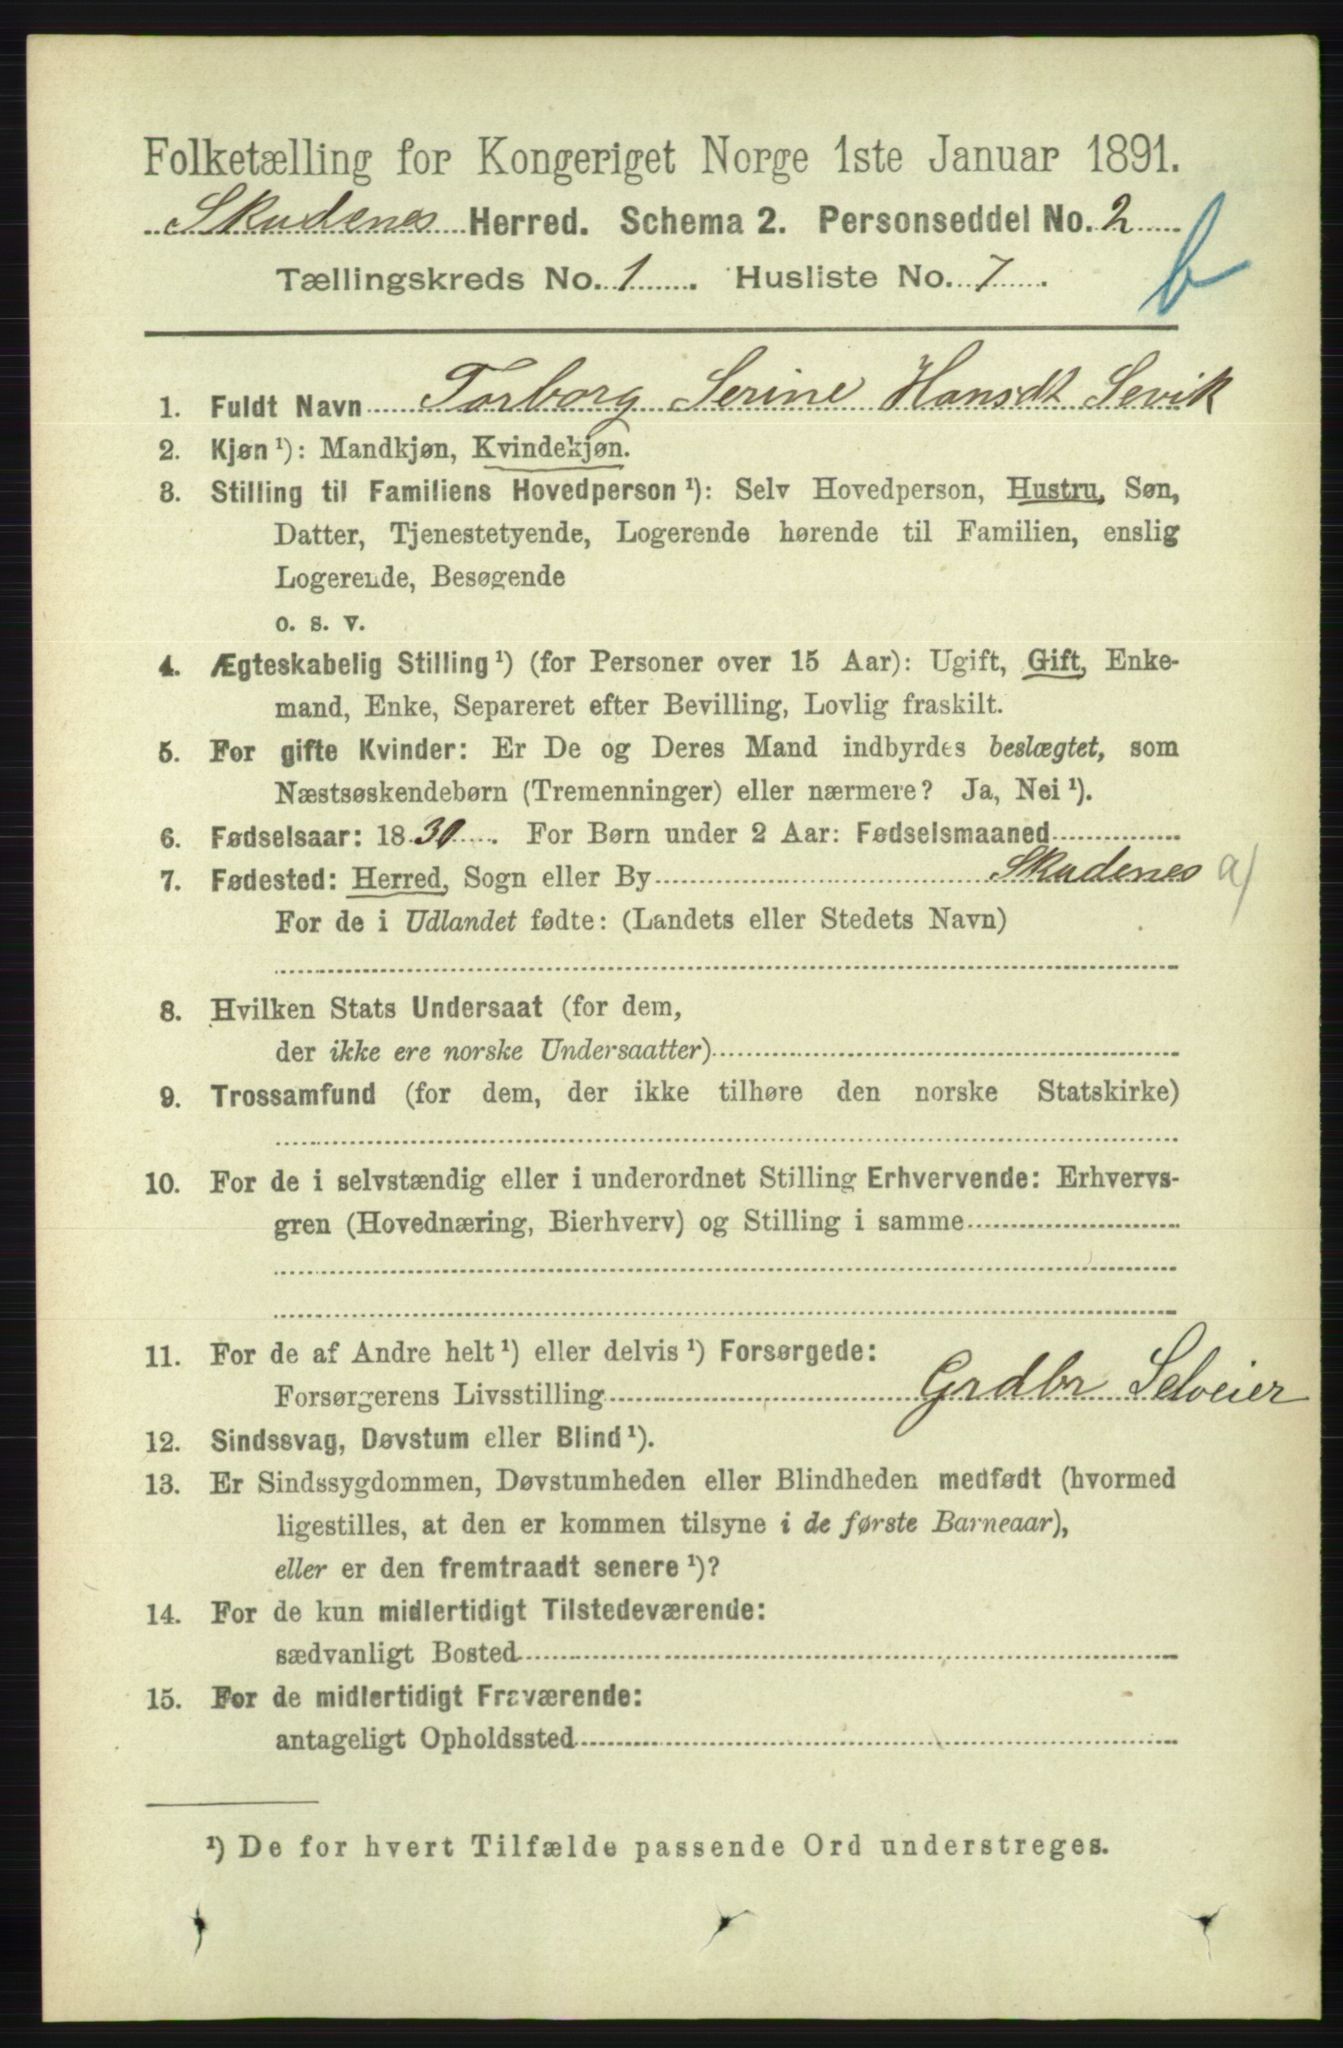 Folketælling for Kongeriget Norge 1ste Januar 1891.
Skudenes Herred. Schema 2. Personseddel No. 2
Tællingskreds No. 1. Husliste No. 7.
b
1. Fuldt Navn Torborg Serine Hansdt Sevik
2. Kjøn ¹): Mandkjøn, Kvindekjøn.
3. Stilling til Familiens Hovedperson ¹): Selv Hovedperson, Hustru, Søn,
Datter, Tjenestetyende, Logerende hørende til Familien, enslig
Logerende, Besøgende
o. s. v.
4. Ægteskabelig Stilling ¹) (for Personer over 15 Aar): Ugift, Gift, Enke-
mand, Enke, Separeret efter Bevilling, Lovlig fraskilt.
5. For gifte Kvinder: Er De og Deres Mand indbyrdes beslægtet, som
Næstsøskendebørn (Tremenninger) eller nærmere? Ja, Nei ¹).
6. Fødselsaar: 1830. For Børn under 2 Aar: Fødselsmaaned
7. Fødested: Herred, Sogn eller By Skudenes a)
For de i Udlandet fødte: (Landets eller Stedets Navn)
8. Hvilken Stats Undersaat (for dem,
der ikke ere norske Undersaatter)
9. Trossamfund (for dem, der ikke tilhøre den norske Statskirke)
10. For de i selvstændig eller i underordnet Stilling Erhvervende: Erhvervs-
gren (Hovednæring, Bierhverv) og Stilling i samme
11. For de af Andre helt ¹) eller delvis ¹) Forsørgede:
Forsørgerens Livsstilling Grdbr Selveier
12. Sindssvag, Døvstum eller Blind ¹).
13. Er Sindssygdommen, Døvstumheden eller Blindheden medfødt (hvormed
ligestilles, at den er kommen tilsyne i de første Barneaar),
eller er den fremtraadt senere ¹)?
14. For de kun midlertidigt Tilstedeværende:
sædvanligt Bosted
15. For de midlertidigt Fraværende:
antageligt Opholdssted
¹) De for hvert Tilfælde passende Ord understreges.